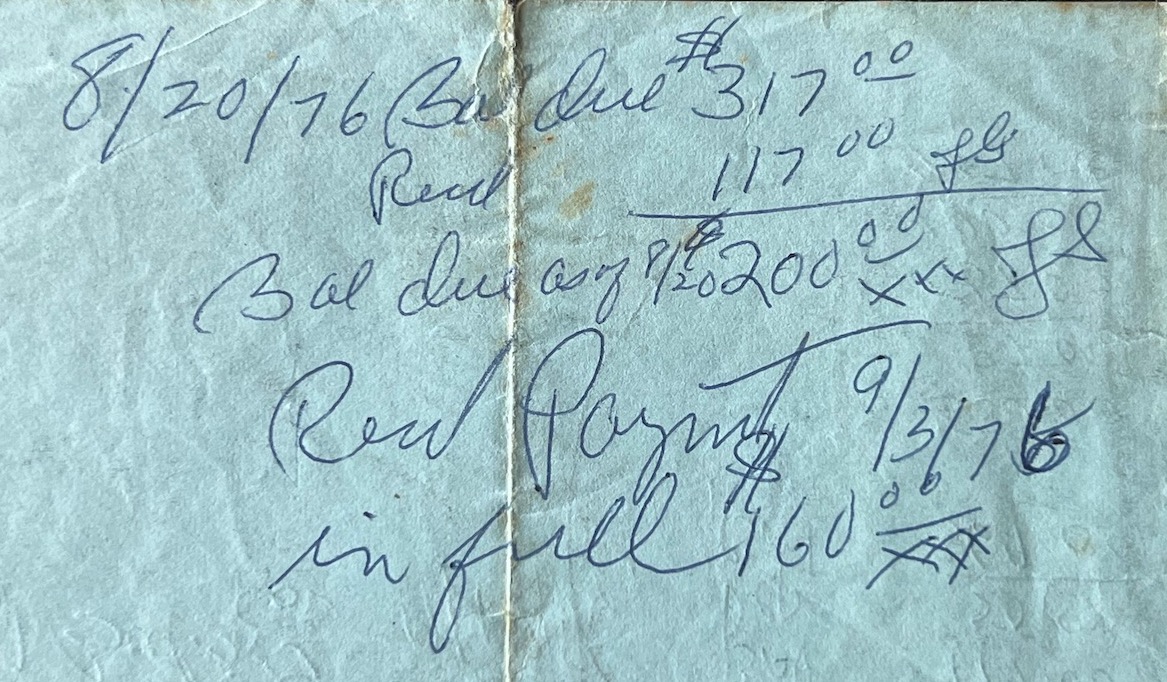 8/20/76 Bal due $317 00
Recd 117 00
Bal due as of 8/20 $200 00 xxx
Recd Paymt 9/3/76
in full $160 00 xxx